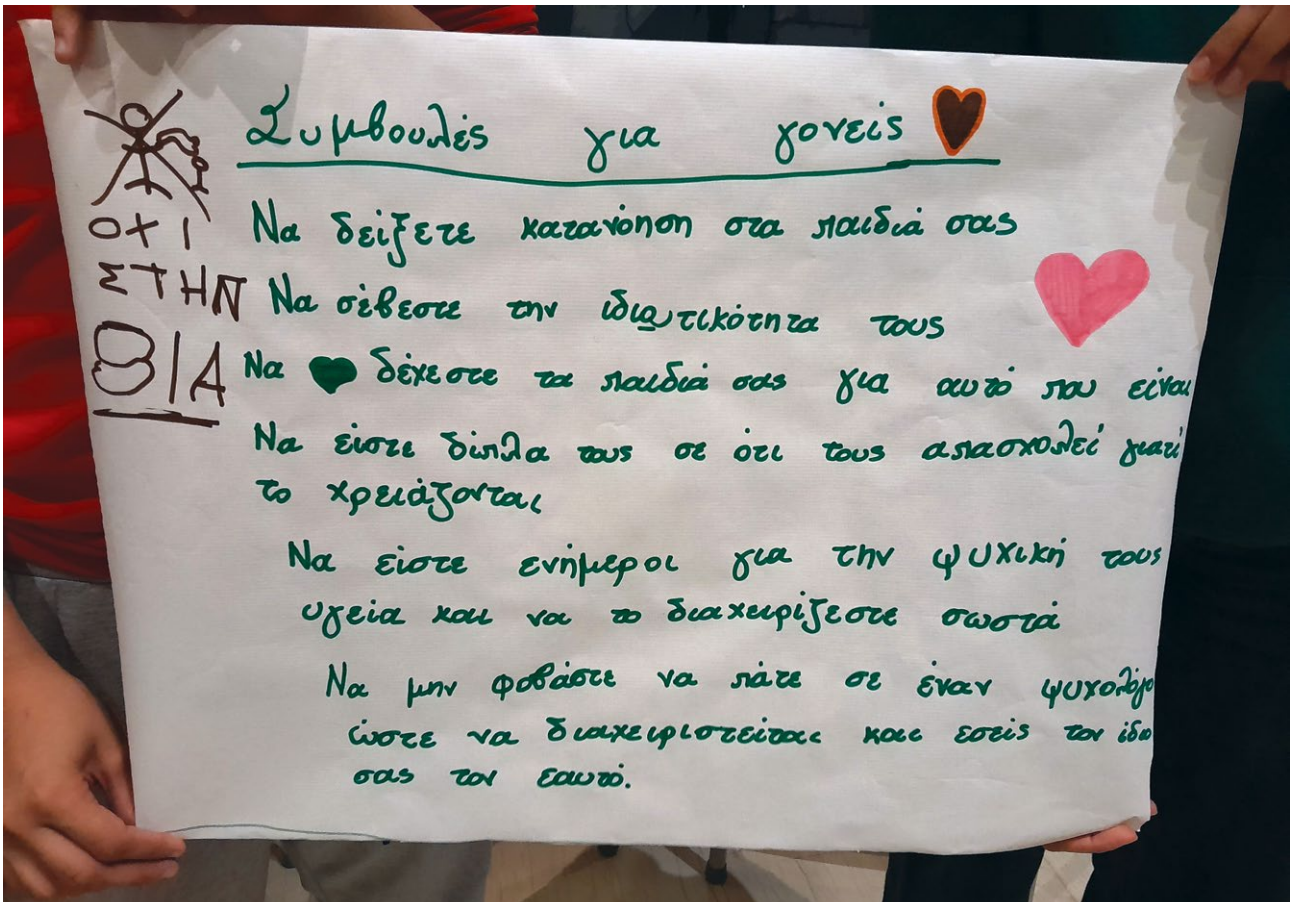 Συμβουλές για γονείς
ΟΧΙ
ΣΤΗΝ
ΒΙΑ
Να δείξετε κατανόηση στα παιδιά σας
Να σέβεστε την ιδιωτικότητα τους
Να δέχεστε τα παιδιά σας για αυτό που είναι
Να είστε δίπλα τους σε ότι τους απασχολεί γιατί
το χρειάζονται
Να είστε ενήμεροι για την ψυχική τους
υγεία και να το διαχειρίζεστε σωστά
Να μην φοβάστε να πάτε σε έναν ψυχολόγο
ώστε να διαχειριστείται και εσείς τον ίδιο
σας τον εαυτό.